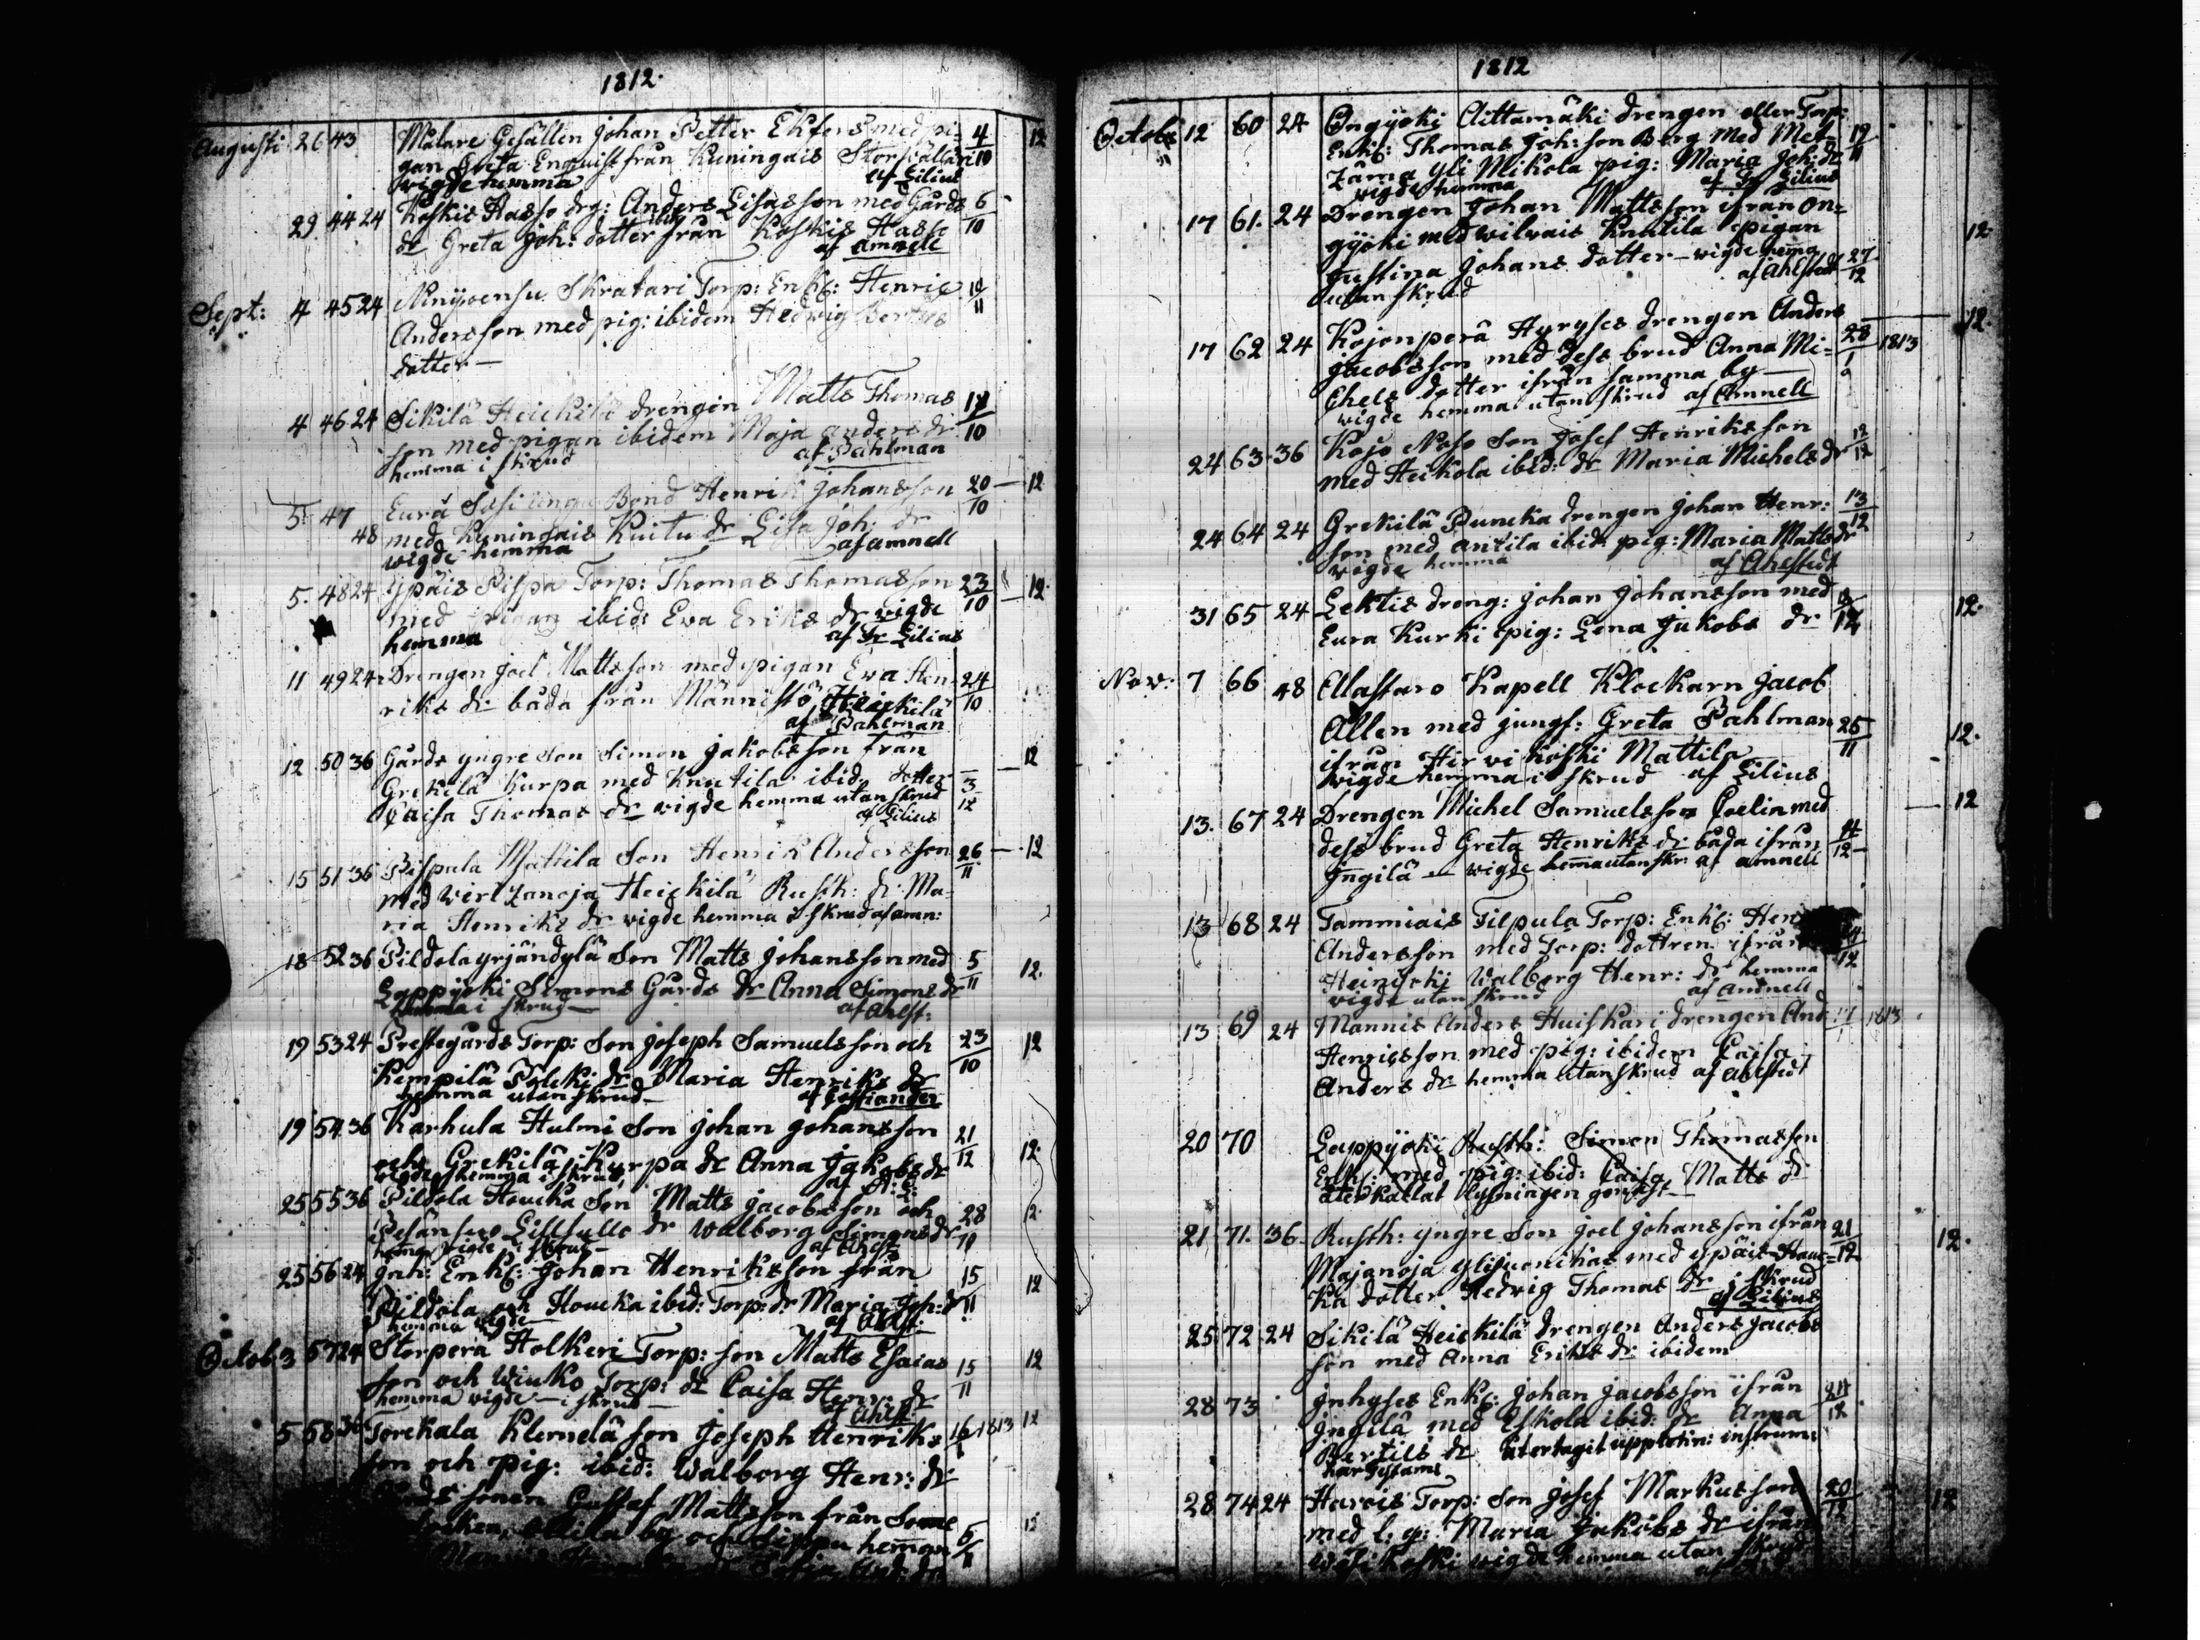 1812.
Augusti 26 43 Målare Gesällen Johan Petter Ekfors med pi= 4/10 12
gan Greta Enquist från Kuningais Storsällari
wigde hemma af Lilius
29 44 24 Koskis Hasso drg: Anders Lisasson med Gårds 6/10
dr Greta Joh: dotter från Koskis Hasso
af Amnell
Sept: 4 45 24 Skratari Torp: Enkl: Henric
Andersson med pig: ibidem Hedwig Bertils
dotter —
4 46 24 Sikilä Heickilä drengen Matts Thomas
son med pigan ibidem Maja Anders dr
hemma i skrud af Pahlman
5 47 Eura Sasi unga Bond Henrik Johansson 20/10 12
48 med Kuningais Kuitu dr Lisa Joh: dr
wigde hemma af Amnell
5. 48 24 Ypäis Pispa Torp: Thomas Thomasson 23/10 12
med pigan ibid: Eva Eriks dr wigde
hemma af Fr Lilius
11 49 24 Drengen Joel Mattsson med pigan Ewa Hen 24/10
riks dr båda från Männistö Heickilä
af Pahlman
12 50 36 Gårds yngre Son Simon Jakobsson från 12
Grekilä Kurpa med Knutila ibid: dotter 3/12
Caisa Thomas dr wigde hemma utan skrud
af Lilius
15 51 36 Pispala Mattila Son Henrik Andersson 26/11 12
med Wirtzanoja Heickilä Rusth: dr Ma
ria Henriks dr wigde hemma i skrud af amn:
18 52 36 Pildola yrjändylä Son Matts Johansson med 5/11 12.
Lappijoki Simons Gårds dr Anna Simons dr
hemma i skrud — af Ahlst:
19 53 24 Prestegårds Torp: Son Joseph Samuelsson och 23/10 12
Kempilä Pöleki dr Maria Henriks dr
hemma utan skrud —
19 54 36 Karhula Hulmi Son Johan Johansson 21/12 12.
och Grekilä Kurpa dr Anna Jakobs dr
wigde hemma i skrud
25 55 36 Pildola Houcka Son Matts Jacobsson och 28/11
dr Walborg Simons dr
hemma wigde i skrud — af Ahlst
25 56 24 Inh: Enkl: Johan Henriksson från 15/11 12
Pildola och Houcka ibid: Torp: dr Maria Joh: dr
hemma wigde — af Ahlst:
Octob: 3 57 24 Storperä Holkeri Torp: son Matts Esaias 15/11 12
son och Wiuko Torp: dr Caisa Henr: dr
hemma wigde — i skrud — af Ahlst
5 58 36 Torekala Klemelä son Joseph Henriks 16/1 1813 12
son och pig: ibid: Walborg Henr: dr
sonen Gustaf Mattsson från Some
by och Sippu hemman 6/11
1812
Octobr 12 60 24 Ongijoki Aittamäki drengen eller Torp:
Enkl: Thomas Joh: son Berg med Met= 19/11
zäma Yli Mikola pig: Maria Joh: dr
wigde hemma af Fr Lilius
17 61. 24 Drengen Johan Mattsson ifrån On= 12.
gijoki med wilwais Knutila pigan
Justina Johans dotter — wigde hemma 27/12
utan skrud af Ahlstedt
17 62 24 Kojonperä Hyryses drengen Anders 12.
Jacobsson med dess brud Anna Mi= 28/1 1813
chels dotter ifrån samma by —
wigde hemma utan skrud af Amnell
24 63 36 Kojo Noso Son Josef Henriksson
med Heikola ibid: dr Maria Michels dr 12/12
24 64 24 Grekilä Puncka drengen Johan Henr: 13/12
son med Antila ibid: pig: Maria Matts dr
wigde hemma af Ahlstedt
31 65 24 Lektis dreng: Johan Johansson med 12.
Eura Kurki pig: Lena Jakobs dr
Nov: 7 66 48 Allastaro Kapell Klockarn Jacob
Allen med jungf: Greta Pahlman 25/11 12.
ifrån Hirwi Koski Mattila
wigde hemma i skrud af Lilius
13. 67 24 Drengen Michel Samuelsson Coelin med 12
dess brud Greta Henriks dr båda ifrån
Ingilä — wigde hemma utan skr: af amnell
13 68 24 Tammiais Tilpula Torp: Enkl: Hen
Andersson med Torp: dottren ifrån
Heinijoki Walborg Henr: dr hemma
wigde utan skrud af Amnell
13 69 24 Mannis Anders Huiskari drengen And 1813
Henricsson med pig: ibidem Caisa
Anders dr hemma utan skrud af Ahlstedt
20 70 Lappijoki Rusth: Simon Thomasson
Enkl: med pig: ibid: Caisa Matts dr
återkallat lysningen
21 71. 36 Rusth: yngre Son Joel Johansson ifrån 21/12 12.
Majanoja ylijuonikas med ypäis Houc=
ka dotter Hedwig Thomas dr i skrud
af Lilius
25 72 24 Sikilä Heickilä drengen Anders Jacobs
son med Anna Eriks dr ibidem
28 73 Inhyses Enkl: Johan Jacobsson ifrån
Ingilä med Eskola ibid: dr Anna
Bertils dr
28 74 24 Harois Torp: Son Josef Markusson 20/12 12
med l: g: Maria Jakobs dr ifrån
wigde hemma utan skrud